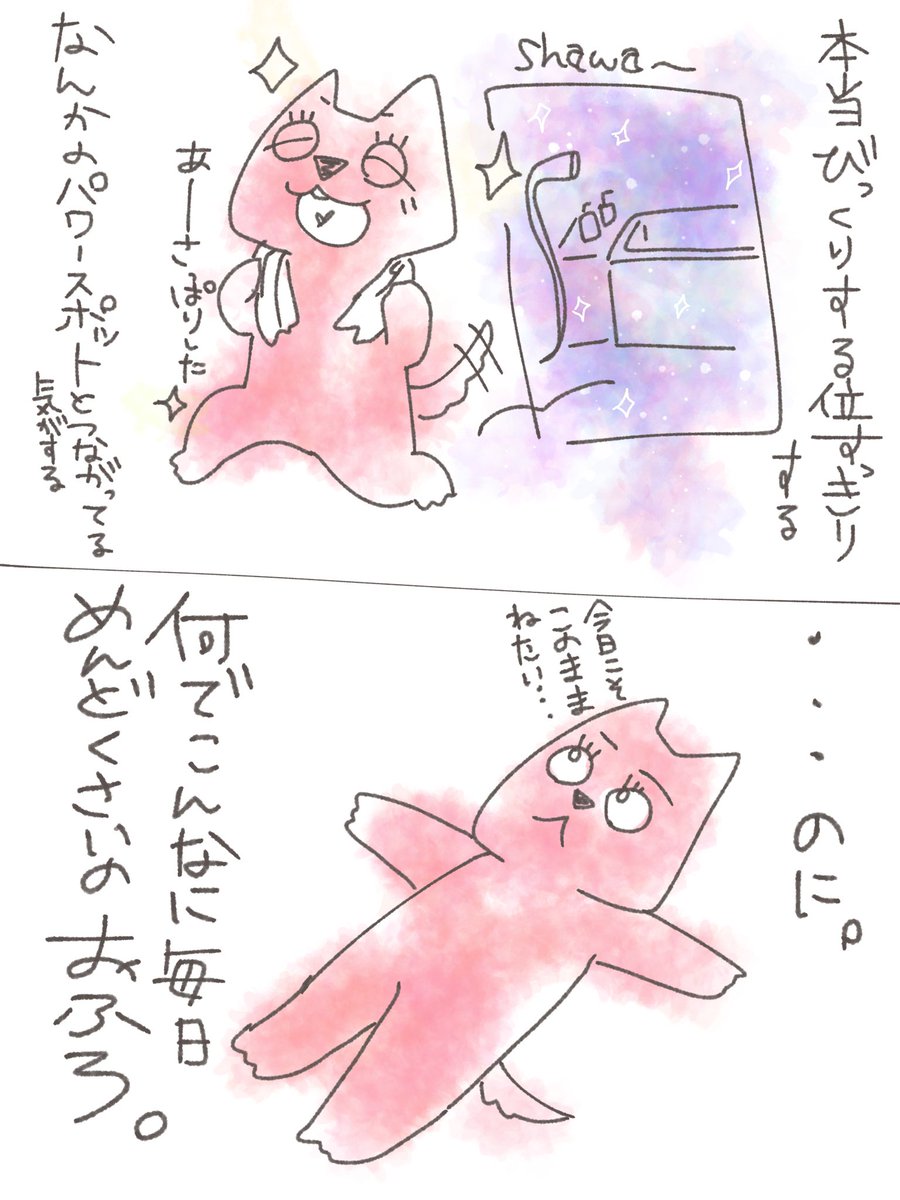 本当びっくりする位すっきり
する
shawa～
あーさぱりした
なんかのパワースポットとつながってる
気がする
・・・のに。
今日こそ
このまま
ねたい・・
何でこんなに毎日
めんどくさいの
おふろ。